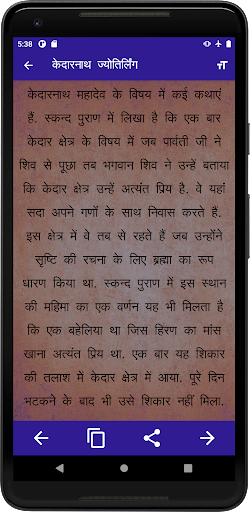 5:38
केदारनाथ ज्योतिर्लिंग
केदारनाथ महादेव के विषय में कई कथाएं
हैं. स्कन्द पुराण में लिखा है कि एक बार
केदार क्षेत्र के विषय में जब पार्वती जी ने
शिव से पूछा तब भगवान शिव ने उन्हें बताया
कि केदार क्षेत्र उन्हें अत्यंत प्रिय है. वे यहां
सदा अपने गणों के साथ निवास करते हैं.
इस क्षेत्र में वे तब से रहते हैं जब उन्होंने
सृष्टि की रचना के लिए ब्रह्मा का रूप
धारण किया था. स्कन्द पुराण में इस स्थान
की महिमा का एक वर्णन यह भी मिलता है
कि एक बहेलिया था जिस हिरण का मांस
खाना अत्यंत प्रिय था. एक बार यह शिकार
की तलाश में केदार क्षेत्र में आया. पूरे दिन
भटकने के बाद भी उसे शिकार नहीं मिला.